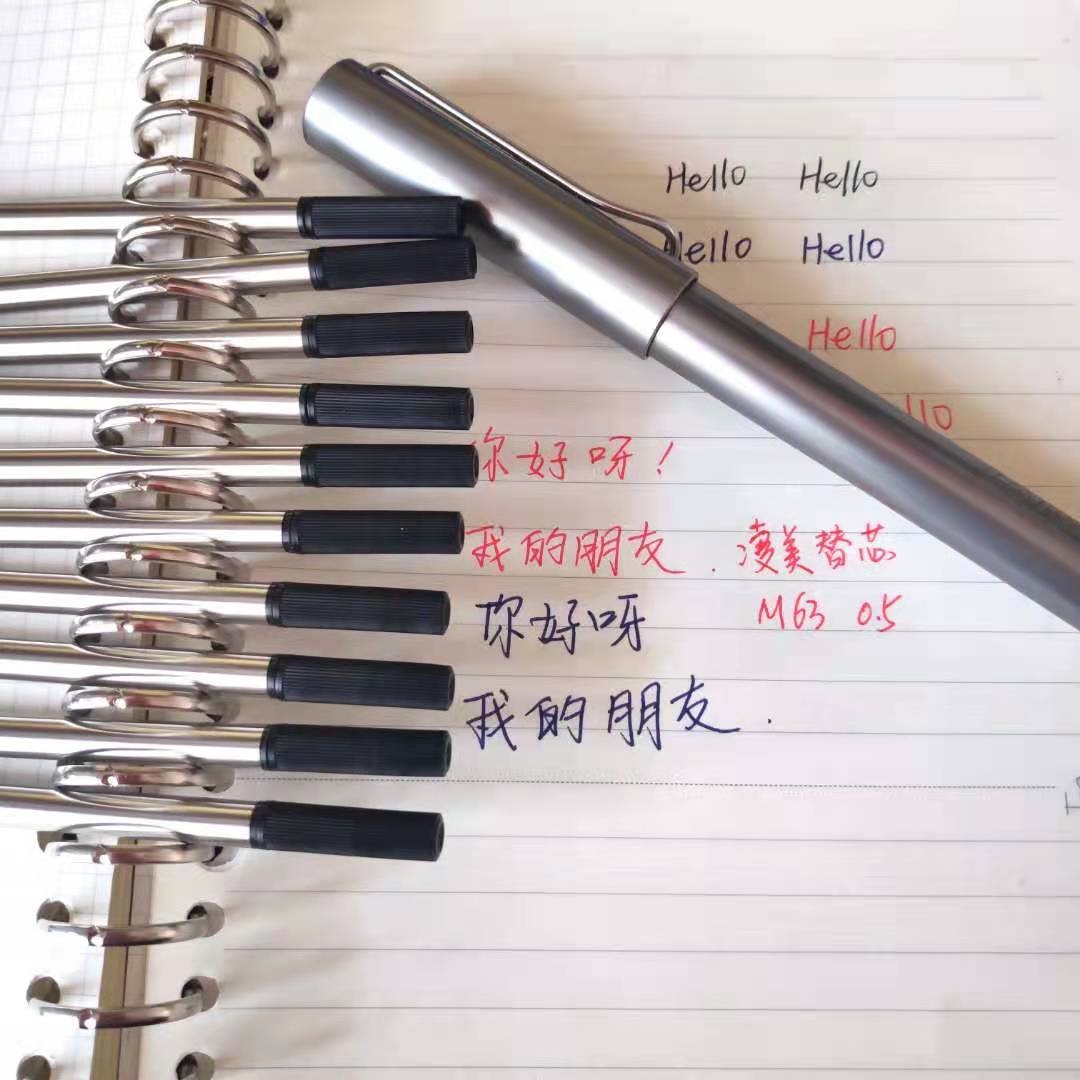 Hello Hello
Hello Hello
Hello
llo
你好呀！
我的朋友. 凌美替芯
你好呀 M63 0.5
我的朋友.